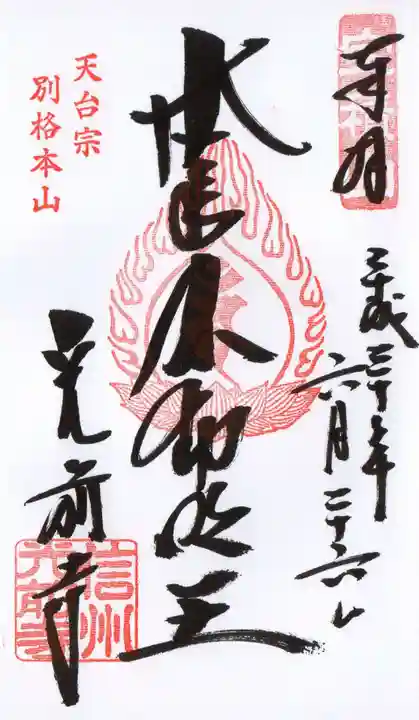 奉拝
平成三十年
六月二十六日
不動明王
天台宗
別格本山
光前寺
信州
光前寺